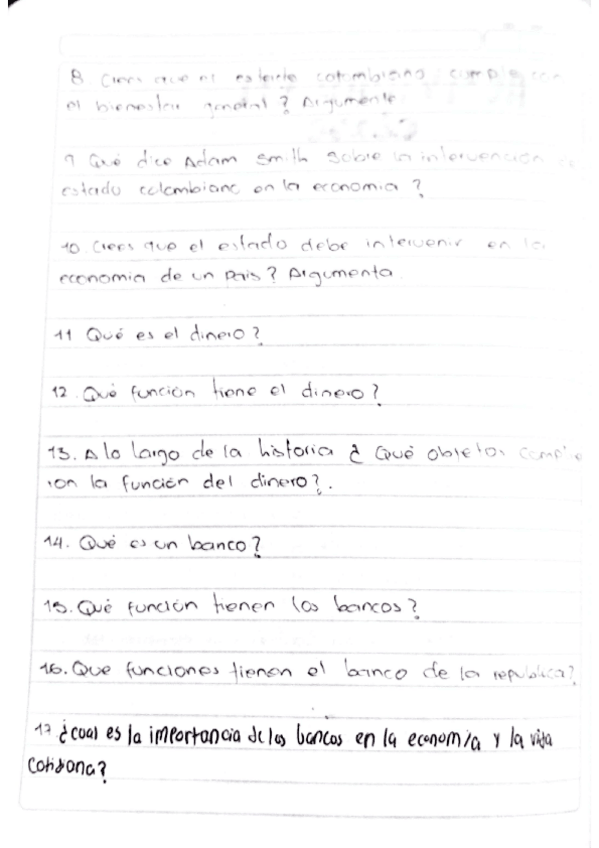 8. Crees que el estado colombiano cumple con
el bienestar general? Argumente
9 Qué dice Adam Smith sobre la intervención
estado colombiano en la economia?
10 Crees que el estado debe intervenir en la
economia de un pais? Argumenta.
11 Qué es el dinero?
12. Qué función tiene el dinero?
13. A lo largo de la historia ¿ Qué objetos cumplie
ron la función del dinero?.
14. Qué es un banco?
15. Qué función tienen los bancos?
16. Que funciones tienen el banco de la republica?
17 ¿cual es la importancia de los bancos en la economia y la vida
cotidiana?